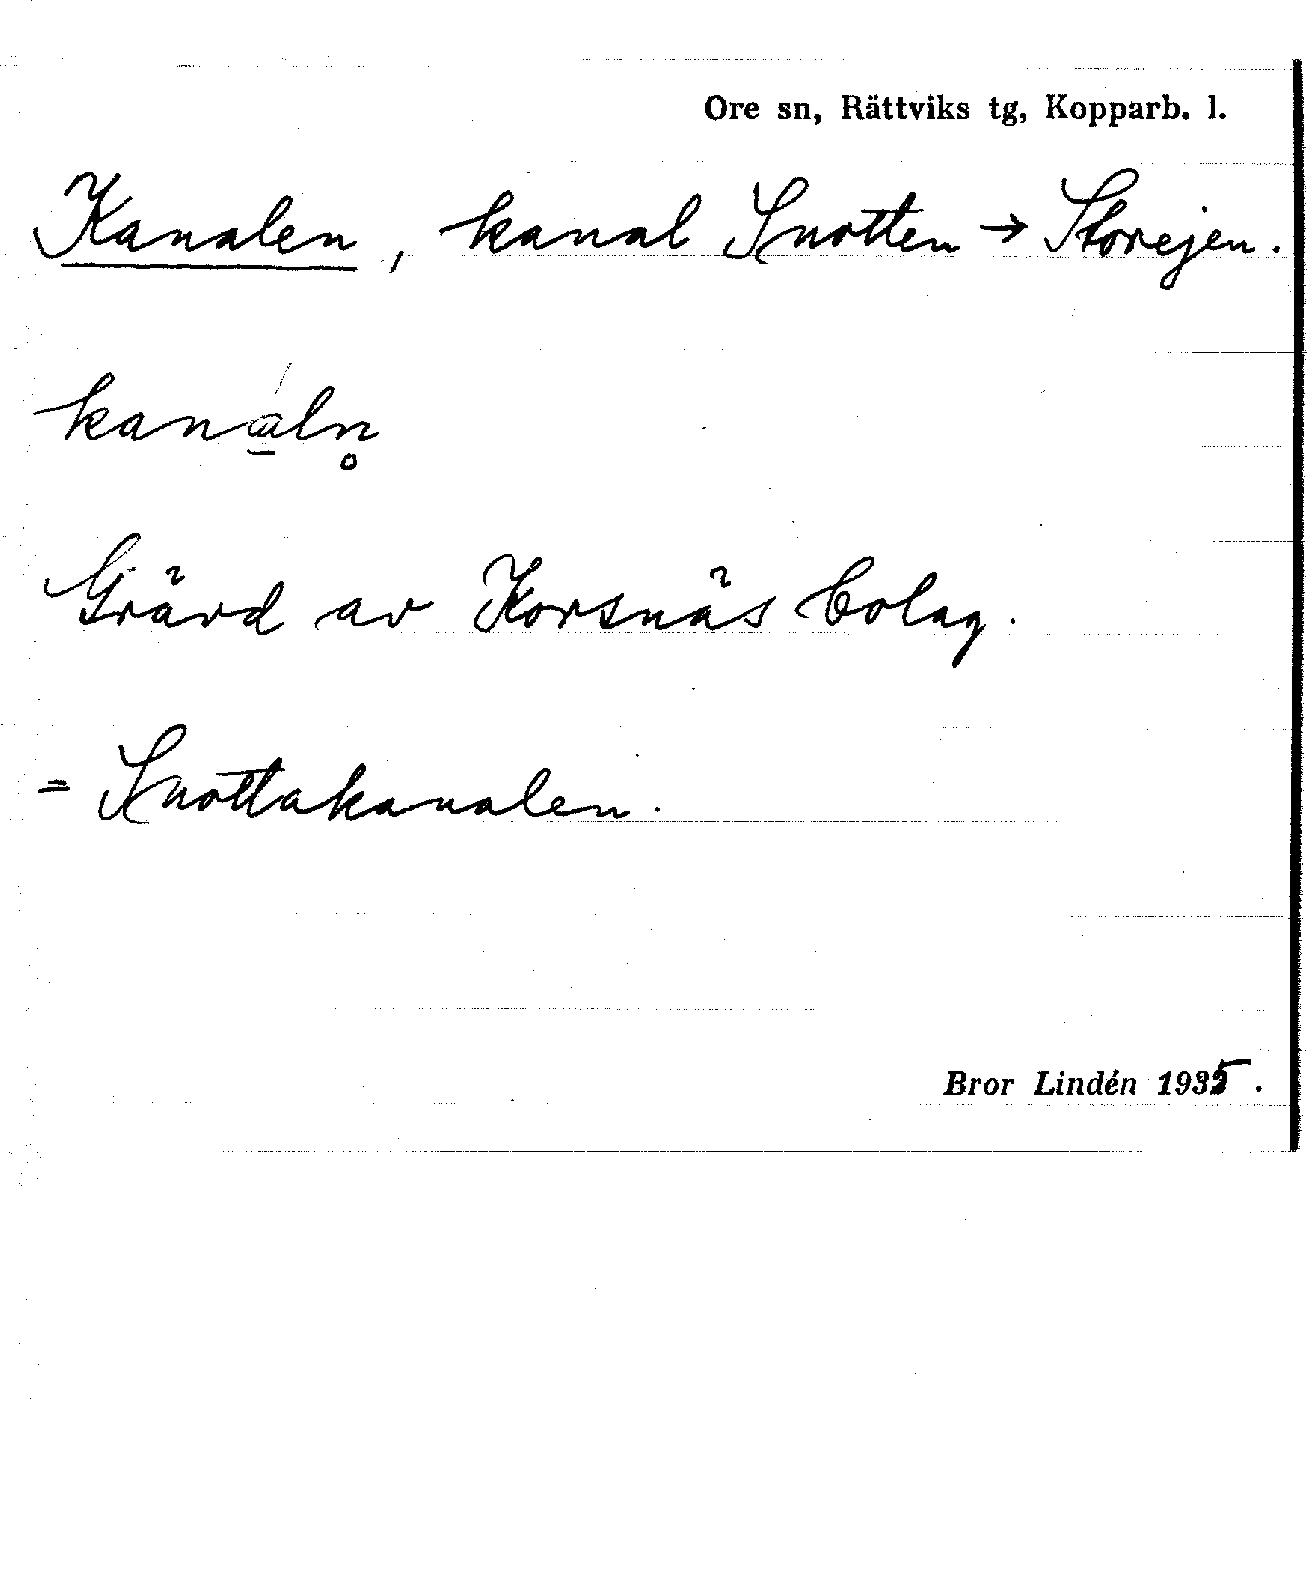 Ore sn, Rättviks tg, Kopparb. l.
Kanalen, kanal Snotten → Storejen.
kana̲ln̥
Grävd av Korsnäs bolag.
= Snottakanalen.
Bror Lindén 1935.